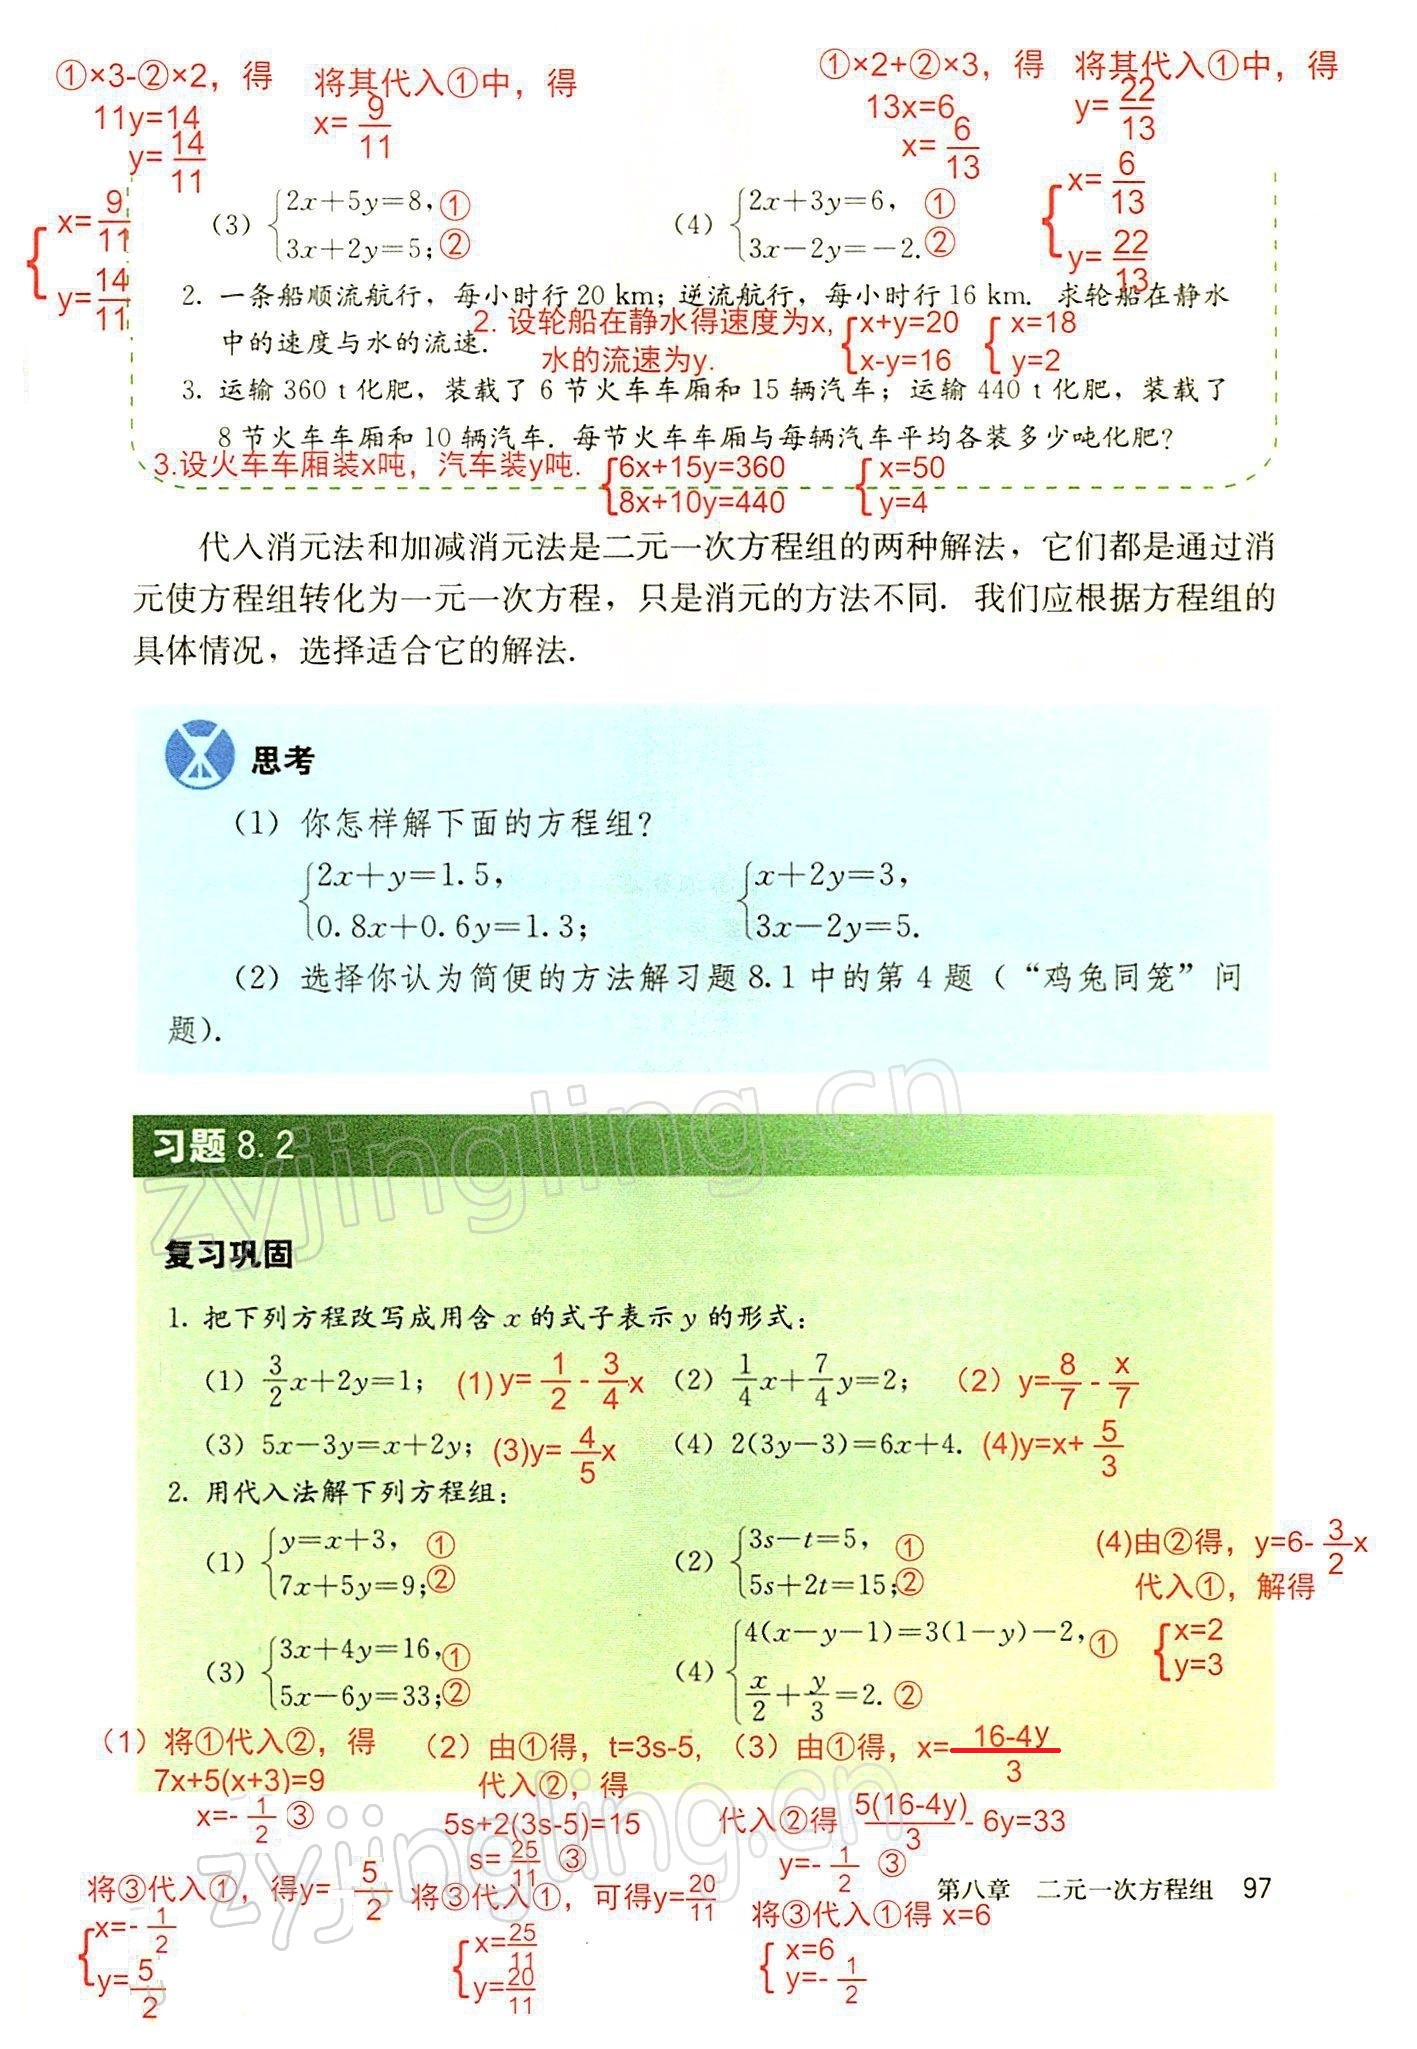 ①×3-②×2，得 将其代入①中，得 ①×2+②×3，得 将其代入①中，得
11y=14 x=9/11 13x=6 y=22/13
y=14/11 x=6/13
(3) {2x+5y=8, ① (4) {2x+3y=6, ① {x=6/13
3x+2y=5; ② 3x-2y=-2. ② y=22/13
{x=9/11
y=14/11
2. 一条船顺流航行，每小时行 20 km；逆流航行，每小时行 16 km. 求轮船在静水
中的速度与水的流速.
2. 设轮船在静水得速度为x, {x+y=20 {x=18
水的流速为y. x-y=16 y=2
3. 运输 360 t 化肥，装载了 6 节火车车厢和 15 辆汽车；运输 440 t 化肥，装载了
8 节火车车厢和 10 辆汽车. 每节火车车厢与每辆汽车平均各装多少吨化肥?
3.设火车车厢装x吨，汽车装y吨. {6x+15y=360 {x=50
8x+10y=440 y=4
代入消元法和加减消元法是二元一次方程组的两种解法，它们都是通过消
元使方程组转化为一元一次方程，只是消元的方法不同. 我们应根据方程组的
具体情况，选择适合它的解法.
思考
(1) 你怎样解下面的方程组?
{2x+y=1.5, {x+2y=3,
0.8x+0.6y=1.3; 3x-2y=5.
(2) 选择你认为简便的方法解习题 8.1 中的第 4 题（“鸡兔同笼”问
题）.
习题 8.2
复习巩固
1. 把下列方程改写成用含 x 的式子表示 y 的形式：
(1) 3/2x+2y=1; (1)y=1/2-3/4x (2) 1/4x+7/4y=2; (2) y=8/7-x/7
(3) 5x-3y=x+2y; (3)y=4/5x (4) 2(3y-3)=6x+4. (4)y=x+5/3
2. 用代入法解下列方程组：
(1) {y=x+3, ① (2) {3s-t=5, ① (4)由②得，y=6-3/2x
7x+5y=9; ② 5s+2t=15; ② 代入①，解得
(3) {3x+4y=16, ① (4) {4(x-y-1)=3(1-y)-2, ① {x=2
5x-6y=33; ② x/2+y/3=2. ② y=3
(1) 将①代入②，得 (2) 由①得，t=3s-5, (3) 由①得，x=16-4y/3
7x+5(x+3)=9 代入②，得
x=-1/2 ③ 5s+2(3s-5)=15 代入②得 5(16-4y)/3-6y=33
s=25/11 ③ y=-1/2 ③
将③代入①，得y=5/2 将③代入①，可得y=20/11 将③代入①得 x=6
{x=-1/2 {x=25/11 {x=6
y=5/2 y=20/11 y=-1/2
第八章 二元一次方程组 97
zyjingling.cn
zyjingling.cn